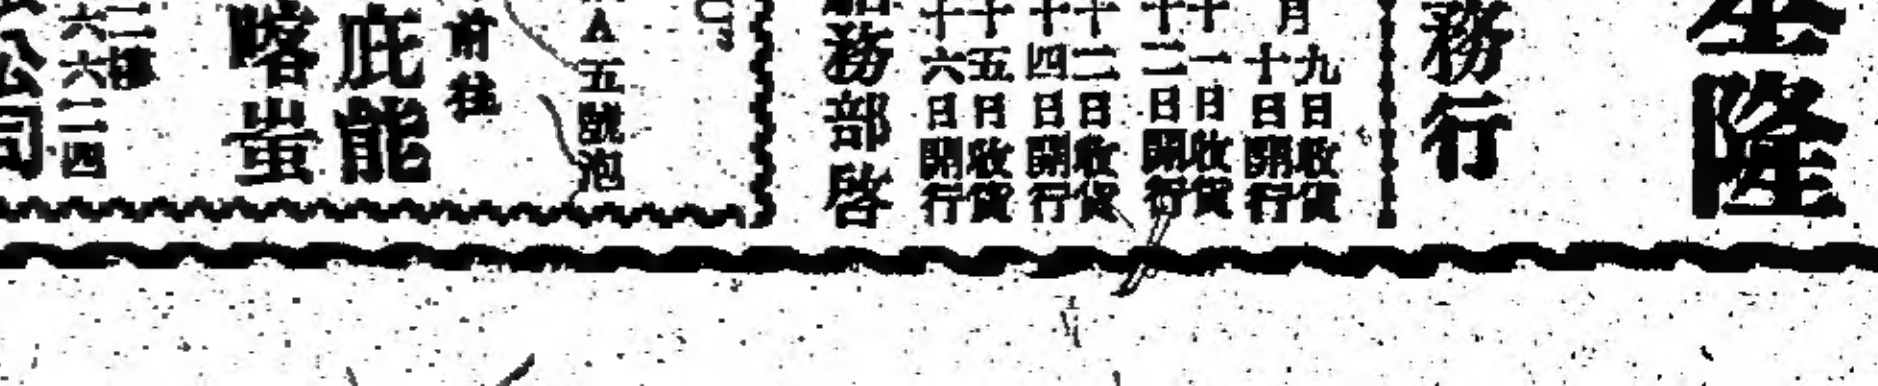 隆
務行
月九日收貨
十日開行
十一日收貨
十二日開行
十二日收貨
十四日開行
十五日收貨
十六日開行
務部啓
A五號泡
前往
庇能
喀蚩
二樓
六六二四
公司